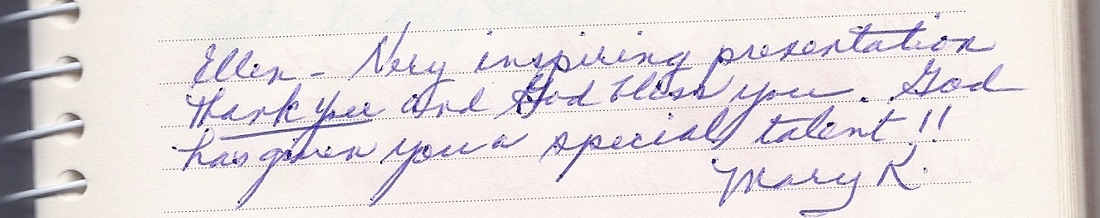 Ellen - Very inspiring presentation
Thank you and God bless you. God
has given you a special talent!!
Mary K.